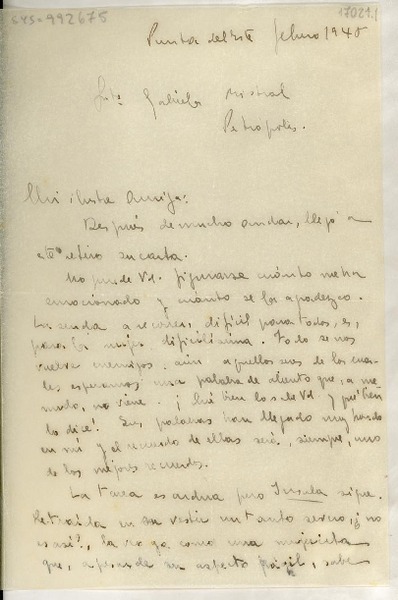 sys=992675
17021.1
Punta del Este febrero 1945
Srta. Gabriela Mistral
Petrópolis.
Mi ilustre Amiga:
Después de mucho andar, llegó a
este retiro su carta.
No puede Vd. figurarse cuánto me ha
emocionado y cuánto se lo agradezco.
La senda a recorrer, difícil para todos, es,
para la mujer dificilísima. Todo se nos
vuelve enemigos. Aún aquellos seres de los cua-
les esperamos una palabra de aliento que, a me-
nudo, no viene. ¡Qué bien lo sabe Vd. y qué bien
lo dice! Sus palabras han llegado muy hondo
en mí y el recuerdo de ellas será, siempre, uno
de los mejores recuerdos.
La tarea es ardua pero Insula sigue.
en su vestir un tanto severo, ¿no
es así?, la veo como una mujercita
que, a pesar de su aspecto frágil, sabe